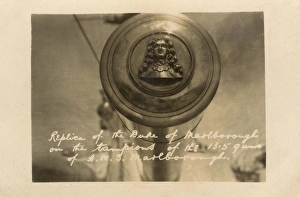 Replica of the Duke of Marlborough
on the tampions of the 13.5 guns
of H.M.S. Marlborough.